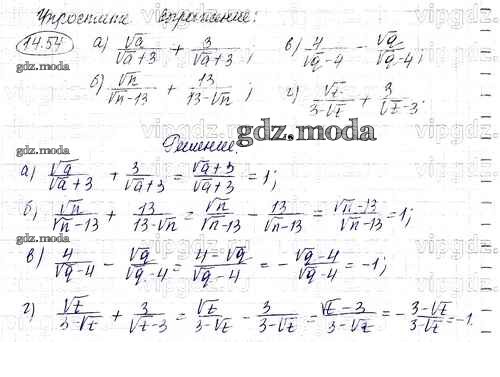 Упростите выражение:
14.54 а) √a/(√a+3) + 3/(√a+3); в) 4/(√q-4) - √q/(√q-4);
gdz.moda
б) √n/(√n-13) + 13/(13-√n); г) √t/(3-√t) + 3/(√t-3).
gdz.moda
Решение.
а) √a/(√a+3) + 3/(√a+3) = (√a+3)/(√a+3) = 1;
б) √n/(√n-13) + 13/(13-√n) = √n/(√n-13) - 13/(√n-13) = (√n-13)/(√n-13) = 1;
gdz.moda
в) 4/(√q-4) - √q/(√q-4) = (4-√q)/(√q-4) = -(√q-4)/(√q-4) = -1;
г) √t/(3-√t) + 3/(√t-3) = √t/(3-√t) - 3/(3-√t) = (√t-3)/(3-√t) = -(3-√t)/(3-√t) = -1.